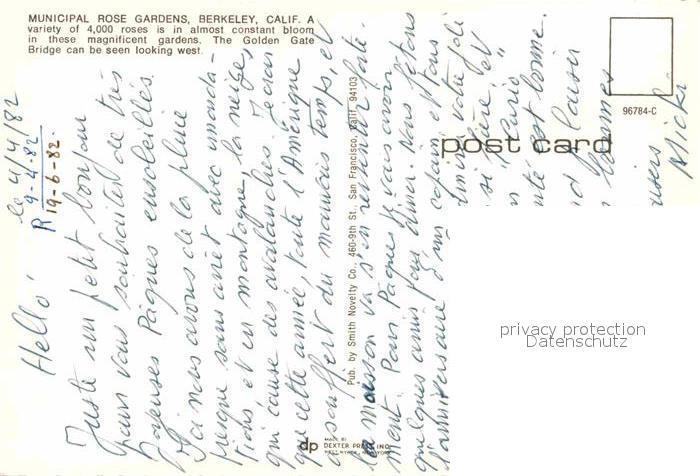 MUNICIPAL ROSE GARDENS, BERKELEY, CALIF. A
variety of 4,000 roses is in almost constant bloom
in these magnificent gardens. The Golden Gate
Bridge can be seen looking west.
96784-C
post card
Pub. by Smith Novelty Co., 460-9th St., San Francisco, Calif. 94103
dp
MADE BY
DEXTER PRESS, INC.
WEST NYACK, NEW YORK
le 4/4/82
R 9-4-82
19-6-82.
Hello!
Juste un petit bonjour
pour vous souhaiter de très
Joyeuses Pâques ensoleillés.
Ici nous avons de la pluie
presque sans arrêt avec inonda-
tions et en montagne, la neige
qui cause des avalanches. Je crois
que cette année, toute l'Amérique
a souffert du mauvais temps, et
la maison va s'en ressentir forte-
ment. Pour Pâques je vais avoir
quelques amis pour dîner. Nous fêtons
l'anniversaire d'un
et tous
votre
et
est bonne.
plaisir
Micke
privacy protection
Datenschutz